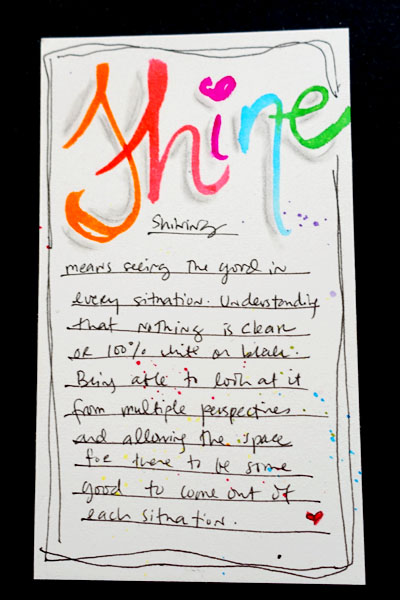 Shine
Shining
means seeing the good in
every situation. Understanding
that nothing is clear
or 100% white or black.
Being able to look at it
from multiple perspectives.
and allowing the space
for there to be some
good to come out of
each situation.